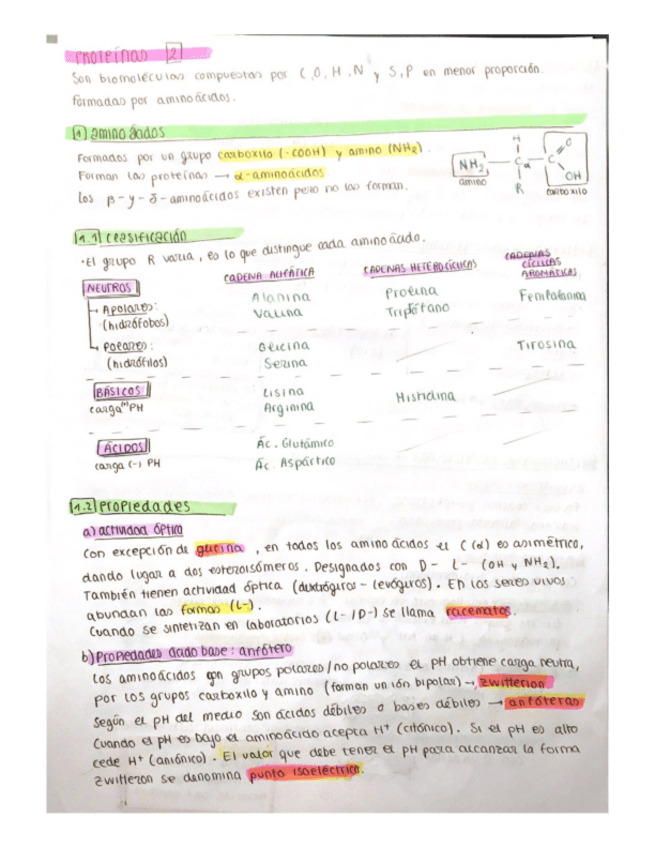 PROTEÍNAS 2
Son biomoléculas compuestas por C, O, H, N y S, P en menor proporción.
Formadas por aminoácidos.
1 aminoácidos
Formados por un grupo carboxilo (-COOH) y amino (NH2).
Forman las proteínas → α-aminoácidos
Los β-y-δ-aminoácidos existen pero no las forman.
H
NH2 Cα C O
OH
R
amino carboxilo
1.1 Clasificación
·El grupo R varía, es lo que distingue cada aminoácido.
CADENA ALIFÁTICA CADENAS HETEROCÍCLICAS CADENAS CÍCLICAS AROMÁTICAS
NEUTROS
Apolares: Alanina Prolina Fenilalanina
(hidrófobos) Valina Triptófano
Polares: Glicina Tirosina
(hidrófilos) Serina
BÁSICOS Lisina Histidina
carga (+) PH Arginina
ÁCIDOS Ác. Glutámico
carga (-) PH Ác. Aspártico
1.2 Propiedades
a) actividad óptica
Con excepción de glicina, en todos los aminoácidos el C (α) es asimétrico,
dando lugar a dos estereoisómeros. Designados con D- L- (OH y NH2).
También tienen actividad óptica (dextrógiros - levógiros). En los seres vivos
abundan las formas (L-).
Cuando se sintetizan en laboratorios (L-/D-) se llama racematos.
b) Propiedades ácido base: anfótero
Los aminoácidos con grupos polares/no polares el pH obtiene carga neutra,
por los grupos carboxilo y amino (forman un ión bipolar) → zwitterion
Según el pH del medio son ácidos débiles o bases débiles → anfóteras
Cuando el pH es bajo el aminoácido acepta H+ (catiónico). Si el pH es alto
cede H+ (aniónico). El valor que debe tener el pH para alcanzar la forma
zwitteron se denomina punto isoeléctrico.